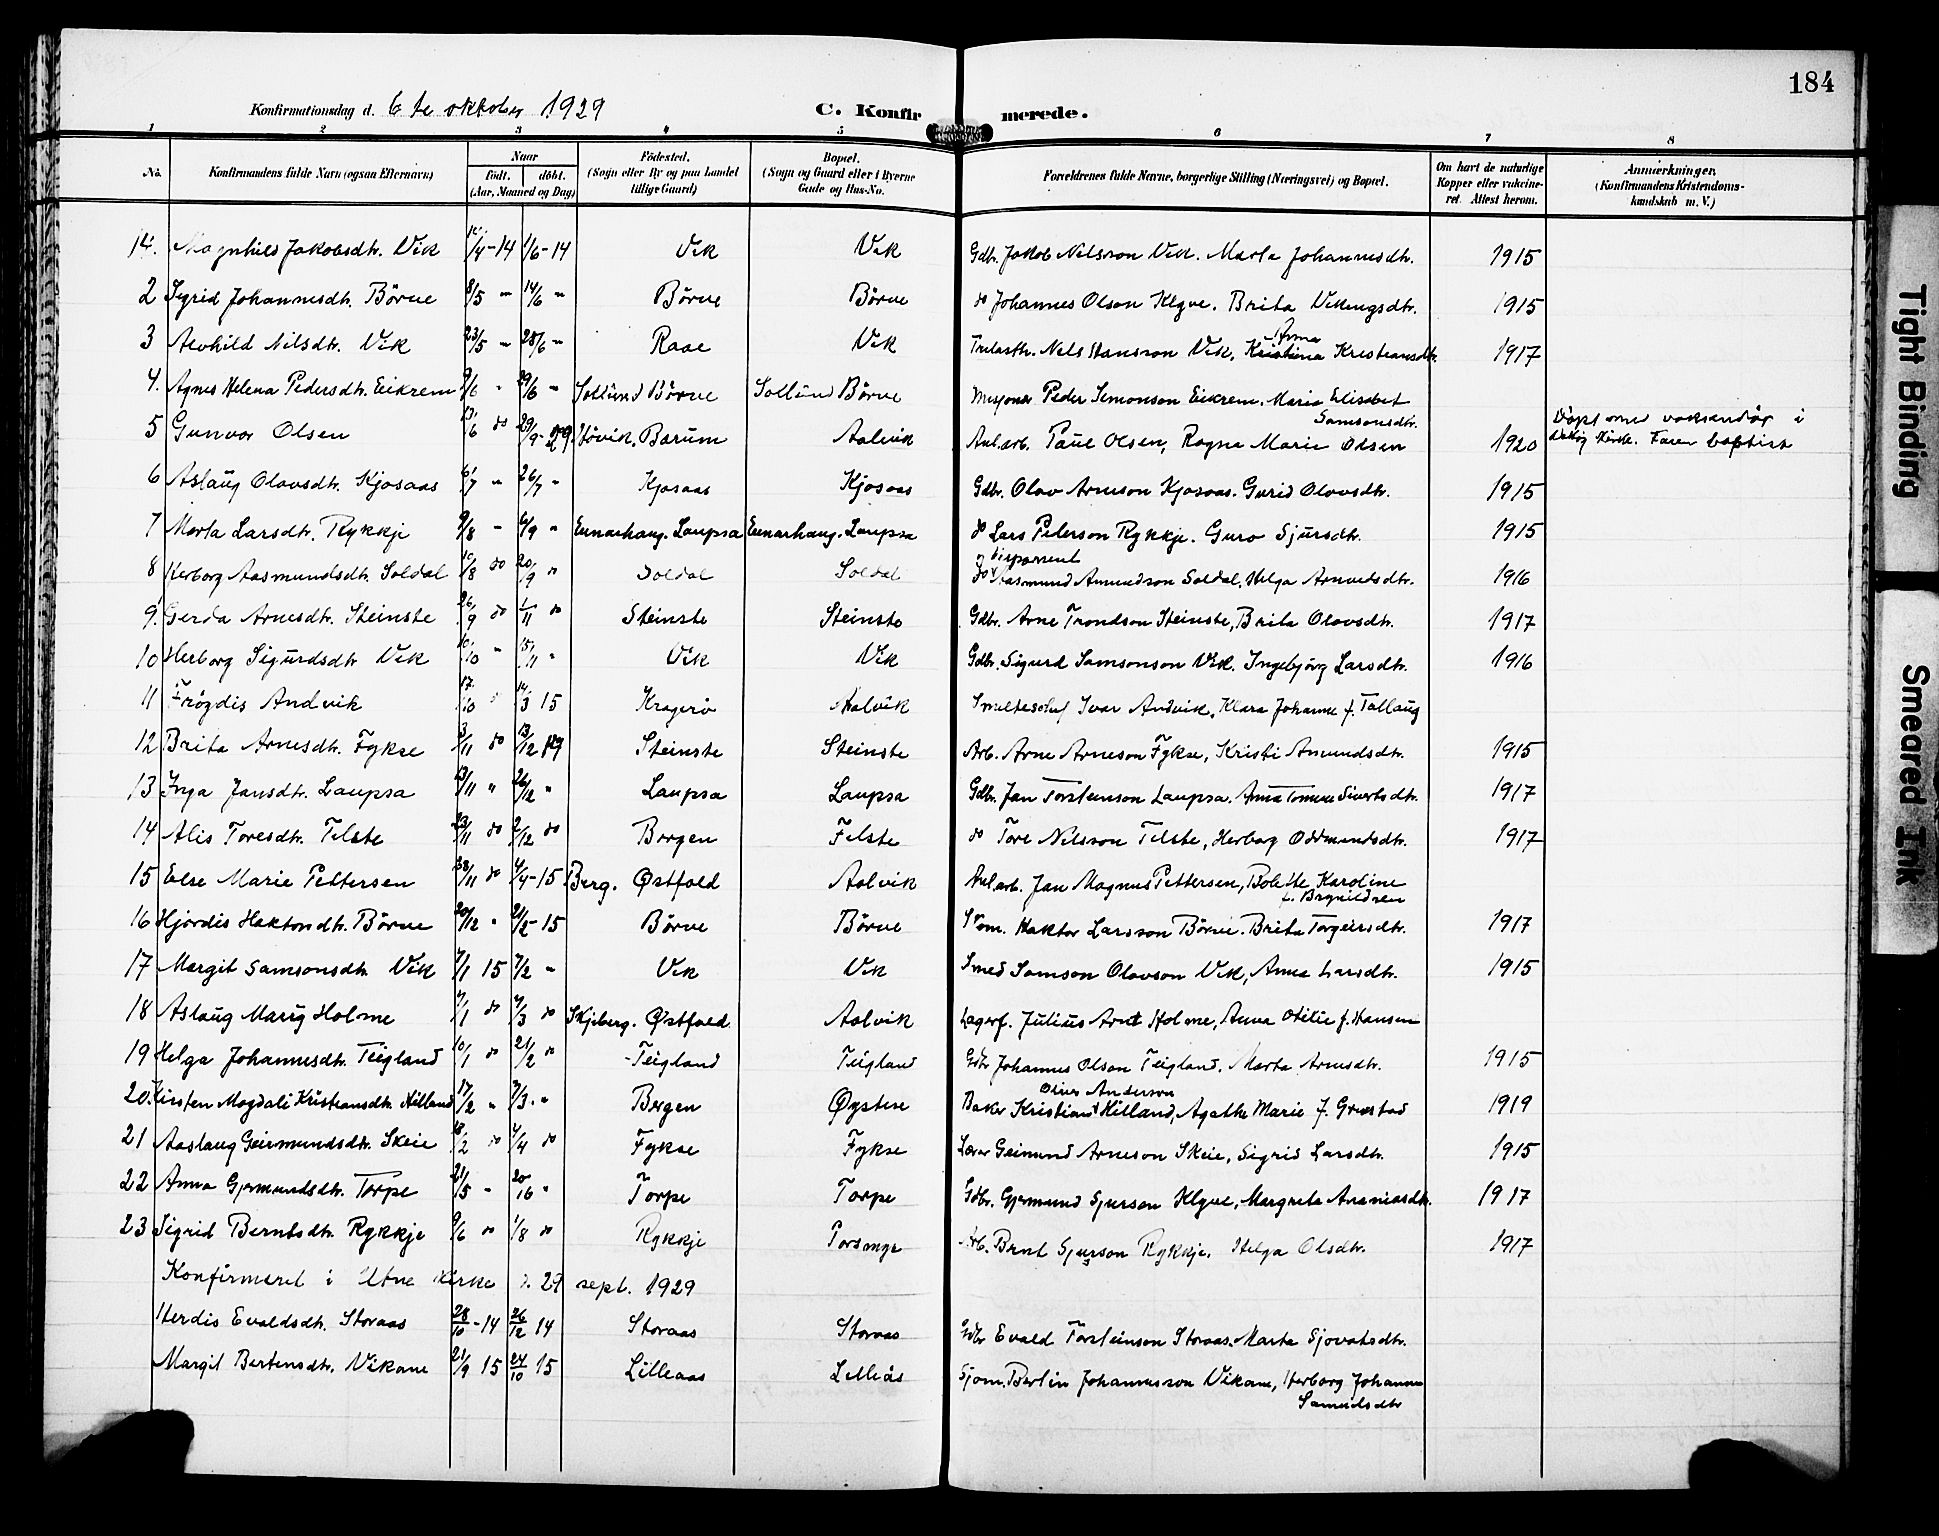 184
Konfirmationsdag d. 6te oktober 1929 C. Konfirmerede.
1 2 3 4 5 6 7 8
No. Konfirmandens fulde Navn (ogsaa Efternavn) Naar født. døbt. (Aar, Maaned og Dag) Fødested. (Sogn eller By og paa Landet tillige Gaard) Bopæl. (Sogn og Gaard eller i Byerne Gade og Hus-No. Forældrenes fulde Navne, borgerlige Stilling (Næringsvei) og Bopæl. Om havt de naturlige Kopper eller vakcineret. Attest herom. Anmærkninger. (Konfirmandens Kristendomskundskab m. V.)
14. Magnhild Jakobsdtr. Vik /4-14 1/6-14 Vik Vik Gdbr. Jakob Nilsson Vik. Marta Johannesdtr. 1915
2 Sigrid Johannesdtr. Börve 8/5 " 14/6 " Börve Börve do Johannes Olson Klyve. Brita Vikingsdtr. 1915
3 Alvhild Nilsdtr. Vik 23/5 " 28/6 " Raae Vik Nils Hansson Vik, Kristina Anna Kristiansdtr. 1917
4. Agnes Helena Pedersdtr. Eikrem 9/6 " 29/6 " Sollund Börve Sollund Börve Misjonær Peder Simonson Eikrem. Maria Elisabet Samsonsdtr.
5 Gunvor Olsen 13/6 do 29/9-29 Hövik, Bærum Aalvik Anl.arb. Paul Olsen, Ragna Marie Olsen 1920 Döpt med voksendåp i Vikøy Kirke. Faren baptist
6 Aslaug Olavsdtr. Kjosaas 6/7 " 26/7 " Kjosaas Kjosaas Gdbr. Olav Arneson Kjosaas. Gurid Olavsdtr. 1915
7 Marta Larsdtr. Rykkje 9/8 " 6/9 " Einarhaug. Laupsa Einarhaug. Laupsa do Lars Pederson Rykkje. Guro Sjursdtr. 1915
8 Herborg Aasmundsdtr. Soldal 10/8 do 20/9 " Soldal Soldal do og disponent Aasmund Amundson Soldal. Helga Arnvedsdtr. 1916
9. Gerda Arnesdtr. Steinste 26/9 do 1/11 do Steinste Steinste Gdbr. Arne Trondson Steinste, Brita Olavsdtr. 1917
10 Herborg Sigurdsdtr Vik 10/10 " 15/11 " Vik Vik Gdbr. Sigurd Samsonson Vik. Ingebjörg Larsdtr. 1916
11 Fröydis Andvik 17/10 " 14/3 15 Kragerö Aalvik Ivar Andvik, Klara Johanne f. Tallaug
12 Brita Arnesdtr. Fykse 3/11 do 13/12 Steinste Steinste Arb. Arne Arneson Fykse, Kristi Amundsdtr. 1915
13 Inga Jansdtr. Laupsa 13/11 " 26/12 " Laupsa Laupsa Gdbr. Jan Torsteinson Laupsa. Anna Tomine Sivertsdtr. 1917
14 Alis Toresdtr. Telste 23/11 do 2/12 do Bergen Telste do Tore Nilsson Telste, Herborg Oddmundsdtr. 1917
15 Else Marie Pettersen 28/11 do 4/4-15 Berg. Østfold Aalvik Anl.arb. Jan Magnus Pettersen, Bolette Karoline f. Brynildsen
16 Hjördis Haktorsdtr. Börve 20/12 " 21/2-15 Börve Börve Haktor Larsson Börve. Brita Torgeirsdtr. 1917
17 Margit Samsonsdtr. Vik 7/1 15 7/2 " Vik Vik Smed Samson Olavson Vik, Anna Larsdtr. 1915
18 Aslaug Marie Holme 7/1 do 7/3 do Skjeberg. Østfold Aalvik Lagerf. Julius Arnt Holme, Anna Otilie f. Hansen
19 Helga Johannesdtr. Teigland 10/1 do 21/2 do Teigland Teigland Gdbr Johannes Olson Teigland. Marta Arnesdtr. 1915
20. Kirsten Magdali Kristiansdtr. Hilland 17/2 " 7/3 " Bergen Øystese Baker Kristian Oliver Anderson Hilland, Agathe Marie f. Grøstad 1919
21 Aaslaug Geirmundsdtr. Skeie 18/2 do 4/4 do Fykse Fykse Lærer Geirmund Arneson Skeie, Sigrid Larsdtr. 1915
22 Anna Gjermundsdtr. Torpe 21/5 " 20/16 " Torpe Torpe Gdbr. Gjermund Sjurson Klyve, Margreta Ananiasdtr. 1917
23 Sigrid Berntsdtr. Rykkje 9/6 do 1/8 do Rykkje Porsmyr Arb. Bernt Sjurson Rykkje. Helga Olsdtr. 1917
Konfirmeret i Utne Kirke d. 29 sept. 1929
Herdis Evaldsdtr. Storaas 28/10-14 26/12 14 Storaas Storaas Gdbr Evald Torsteinson Storaas. Marta Sjovatsdtr.
Margit Bertinsdtr. Vikane 21/9 15 24/10 15 Lilleaas Lilleås Sjöm. Bertin Johannesson Vikane, Herborg Johanne Samuelsdtr
Tight Binding
Smeared Ink